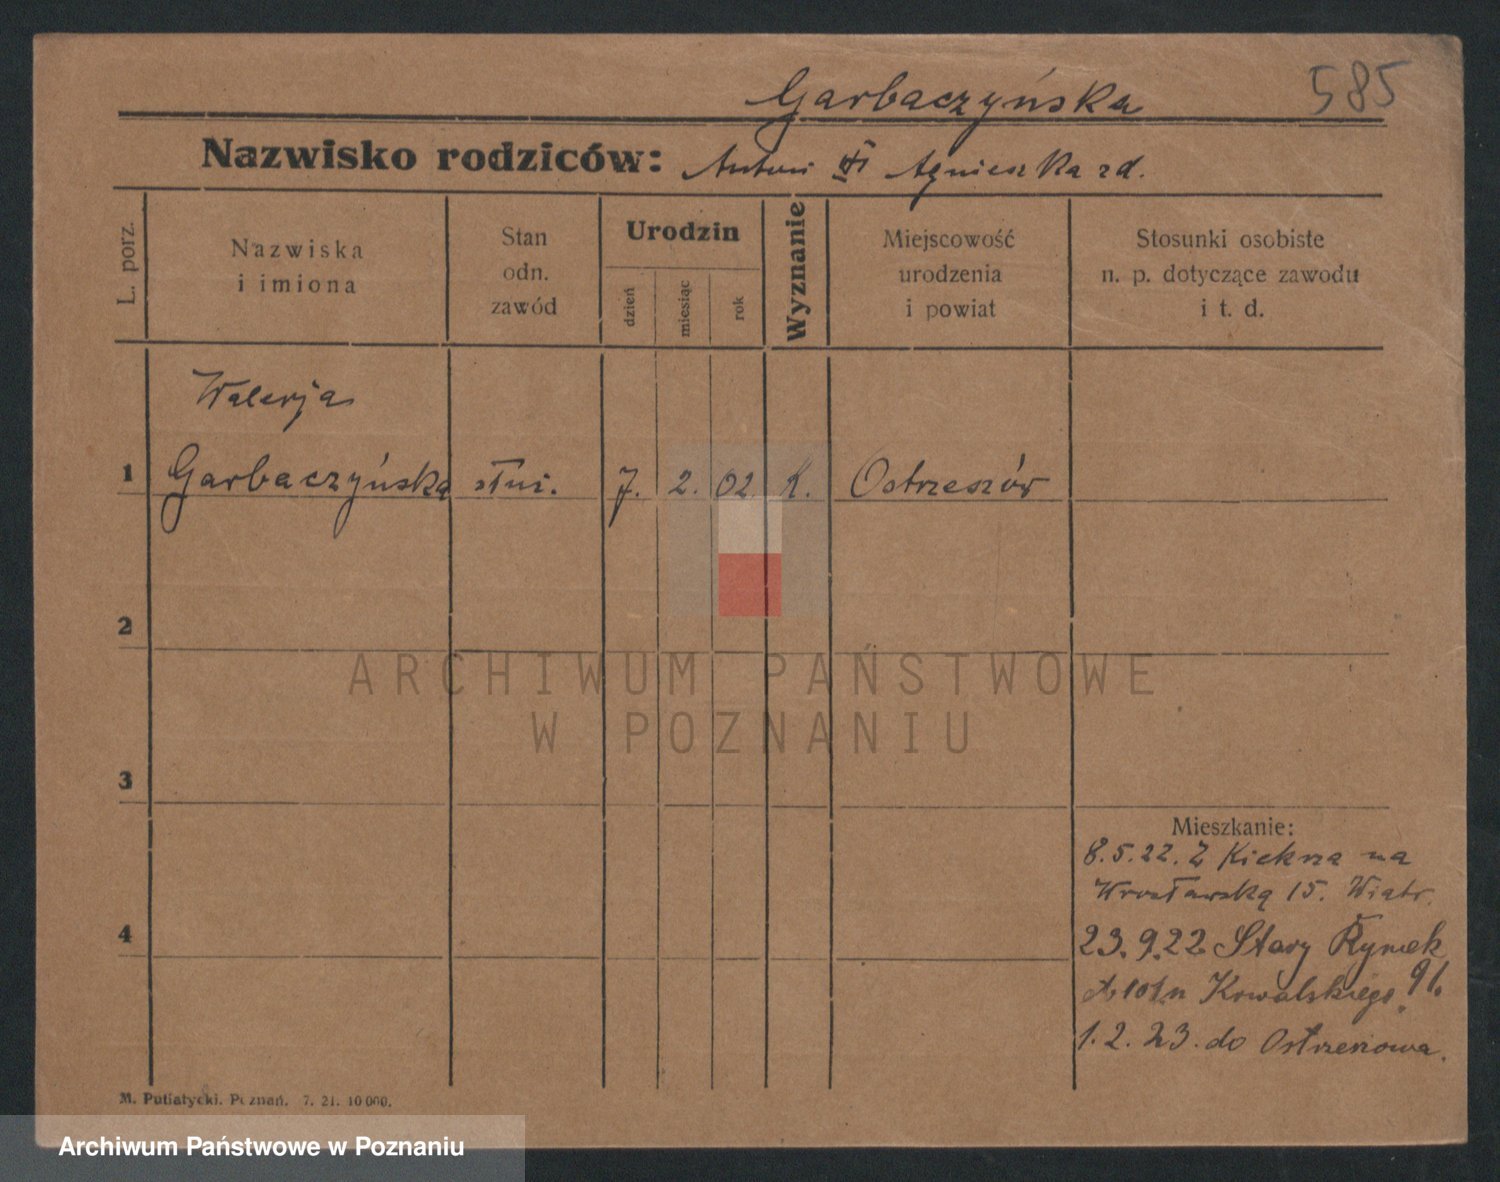 Garbaczyńska
585
Nazwisko rodziców: Antoni Agnieszka zd.
L. porz.
Nazwiska
i imiona
Stan
odn.
zawód
Urodzin
dzień
miesiąc
rok
Wyznanie
Miejscowość
urodzenia
i powiat
Stosunki osobiste
n. p. dotyczące zawodu
i t. d.
Walerja
1 Garbaczyńska służ. 7. 2. 02. K. Ostrzeszów
2
3
4
Mieszkanie:
8.5.22. Z Kiekrza na
Wrocławską 15. Wiatr.
23.9.22 Stary Rynek
91.
Kowalskiego.
1.2.23. do Ostrzeszowa.
M. Putiatycki. Poznań. 7. 21. 10 000.
ARCHIWUM PAŃSTWOWE
W POZNANIU
Archiwum Państwowe w Poznaniu